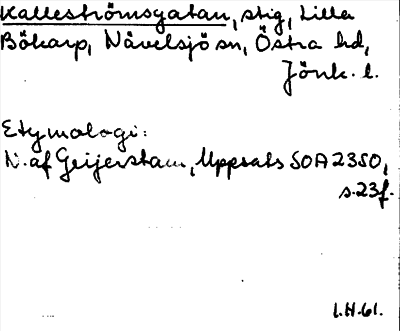 Kalleströmsgatan, stig, Lilla
Bökarp, Nävelsjö sn, Östra hd,
Jönk. l.
Etymologi:
N. af Geijerstam, Uppsats SOA 2350,
s. 23f.
I.H.61.